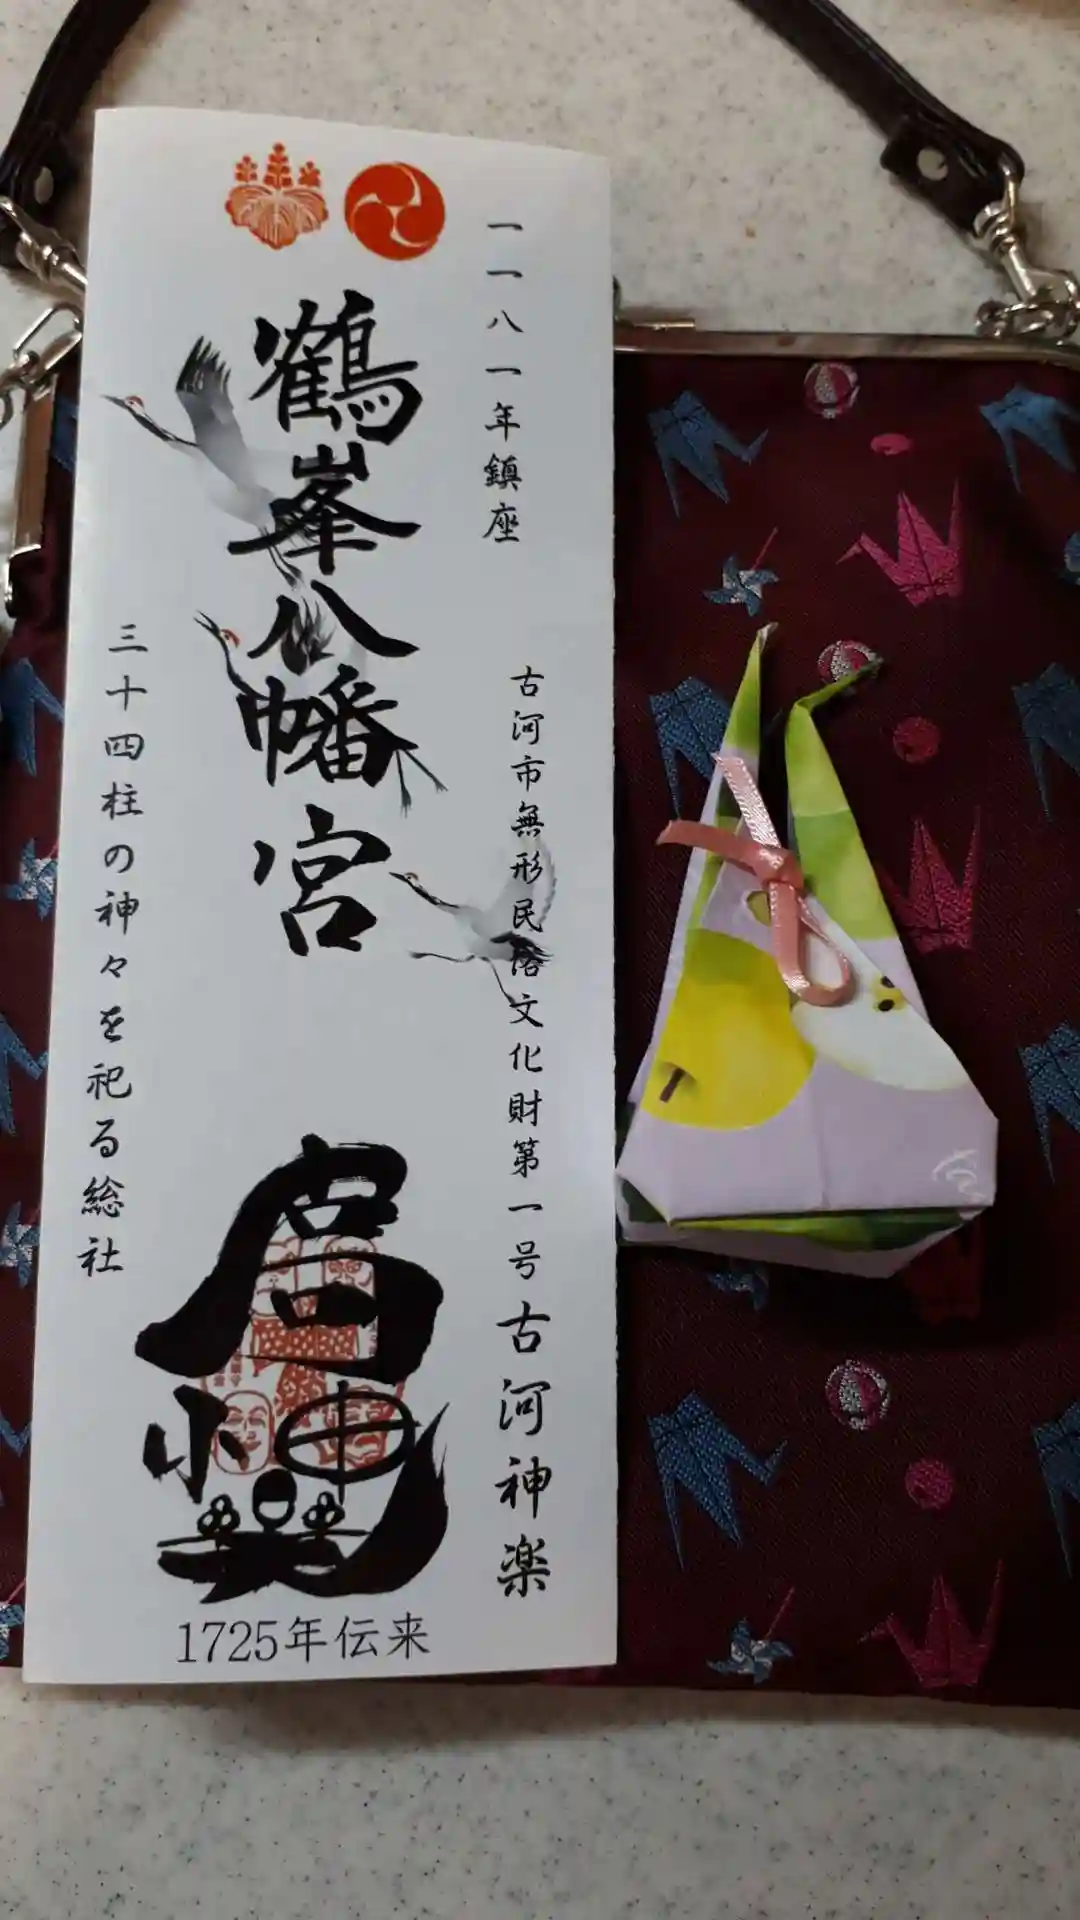 一一八一年鎮座
古河市無形民俗文化財第一号古河神楽
鶴峯八幡宮
三十四柱の神々を祀る総社
1725年伝来